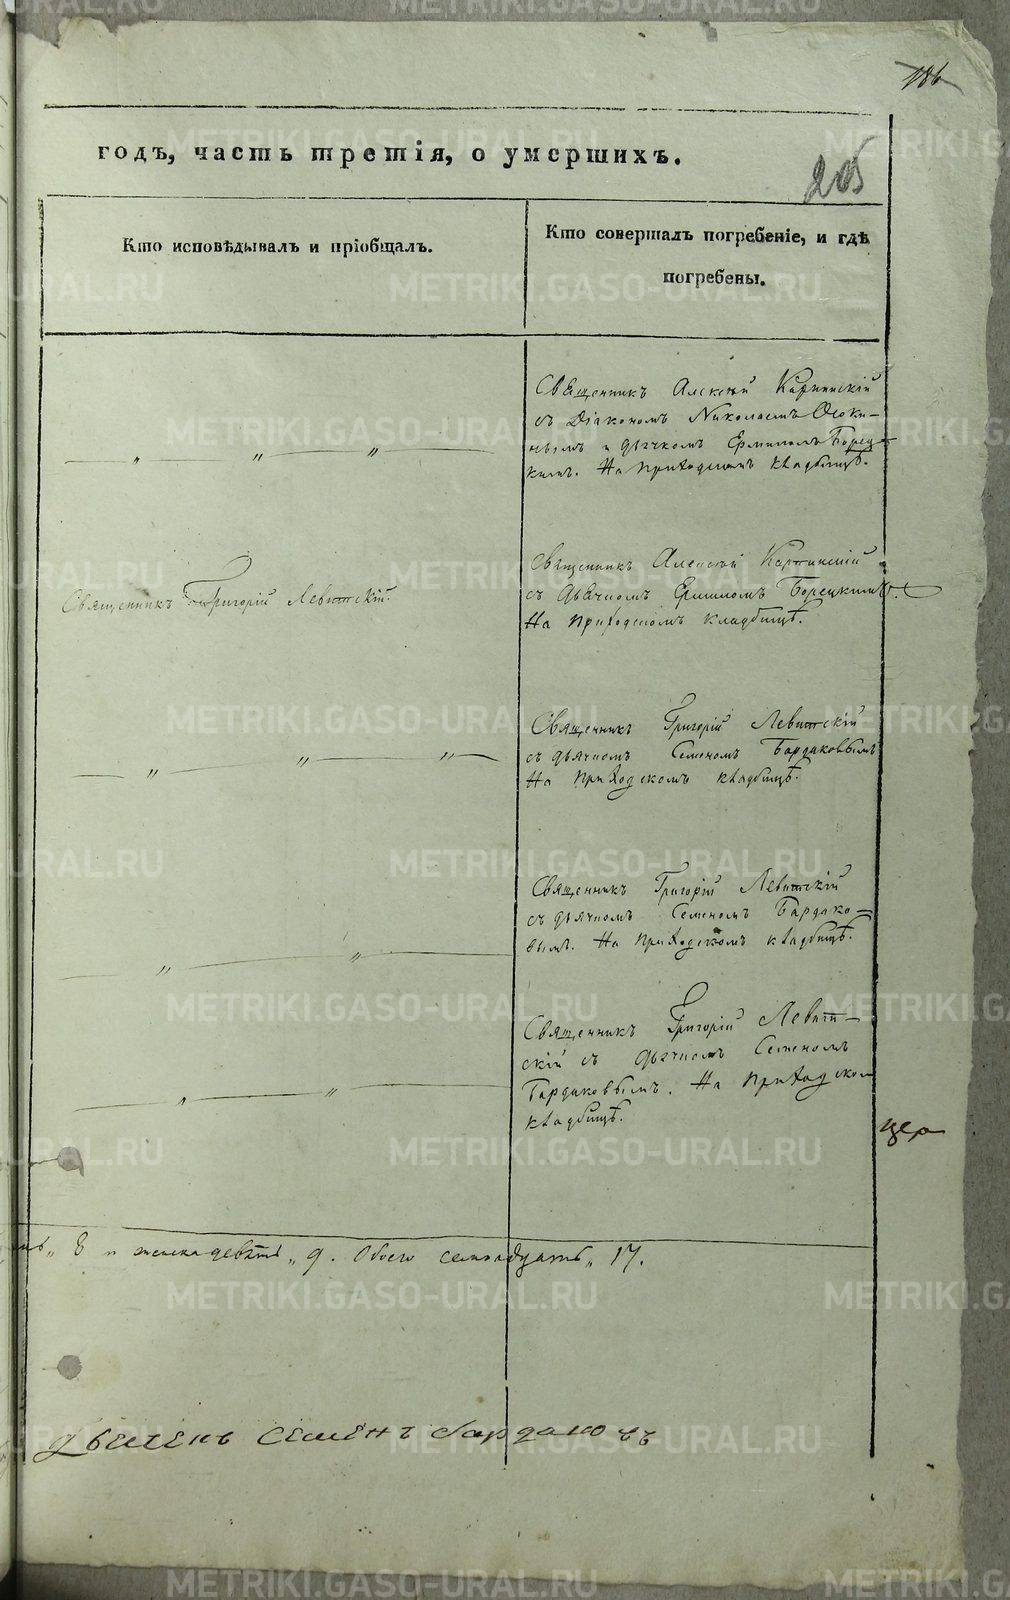 186
годъ, часть третія, о умершихъ.
205
Кто исповѣдывалъ и пріобщалъ.
Кто совершалъ погребеніе, и гдѣ
погребены.
Священникъ Алексѣй Карпинскій
съ Діакономъ Николаемъ Осоки-
нымъ и дьячкомъ Ермиломъ Борец-
кимъ. На приходскомъ кладбищѣ.
Священникъ Григорій Левитскій.
Священникъ Алексѣй Карпинскій
съ дьячкомъ Ермиломъ Борецкимъ.
На приходскомъ кладбищѣ.
Священникъ Григорій Левитскій
съ дьячкомъ Семеномъ Бардаковымъ
На приходскомъ кладбищѣ.
Священникъ Григорій Левитскій
съ дьячкомъ Семеномъ Бардако-
вымъ. На приходскомъ кладбищѣ.
Священникъ Григорій Левит-
скій съ дьячкомъ Семеномъ
Бардаковымъ. На приходском
кладбищѣ.
цер
8 и женска девять „ 9. Обоего семнадцать „ 17.
Дьячекъ Семенъ Бардаковъ
METRIKI.GASO-URAL.RU